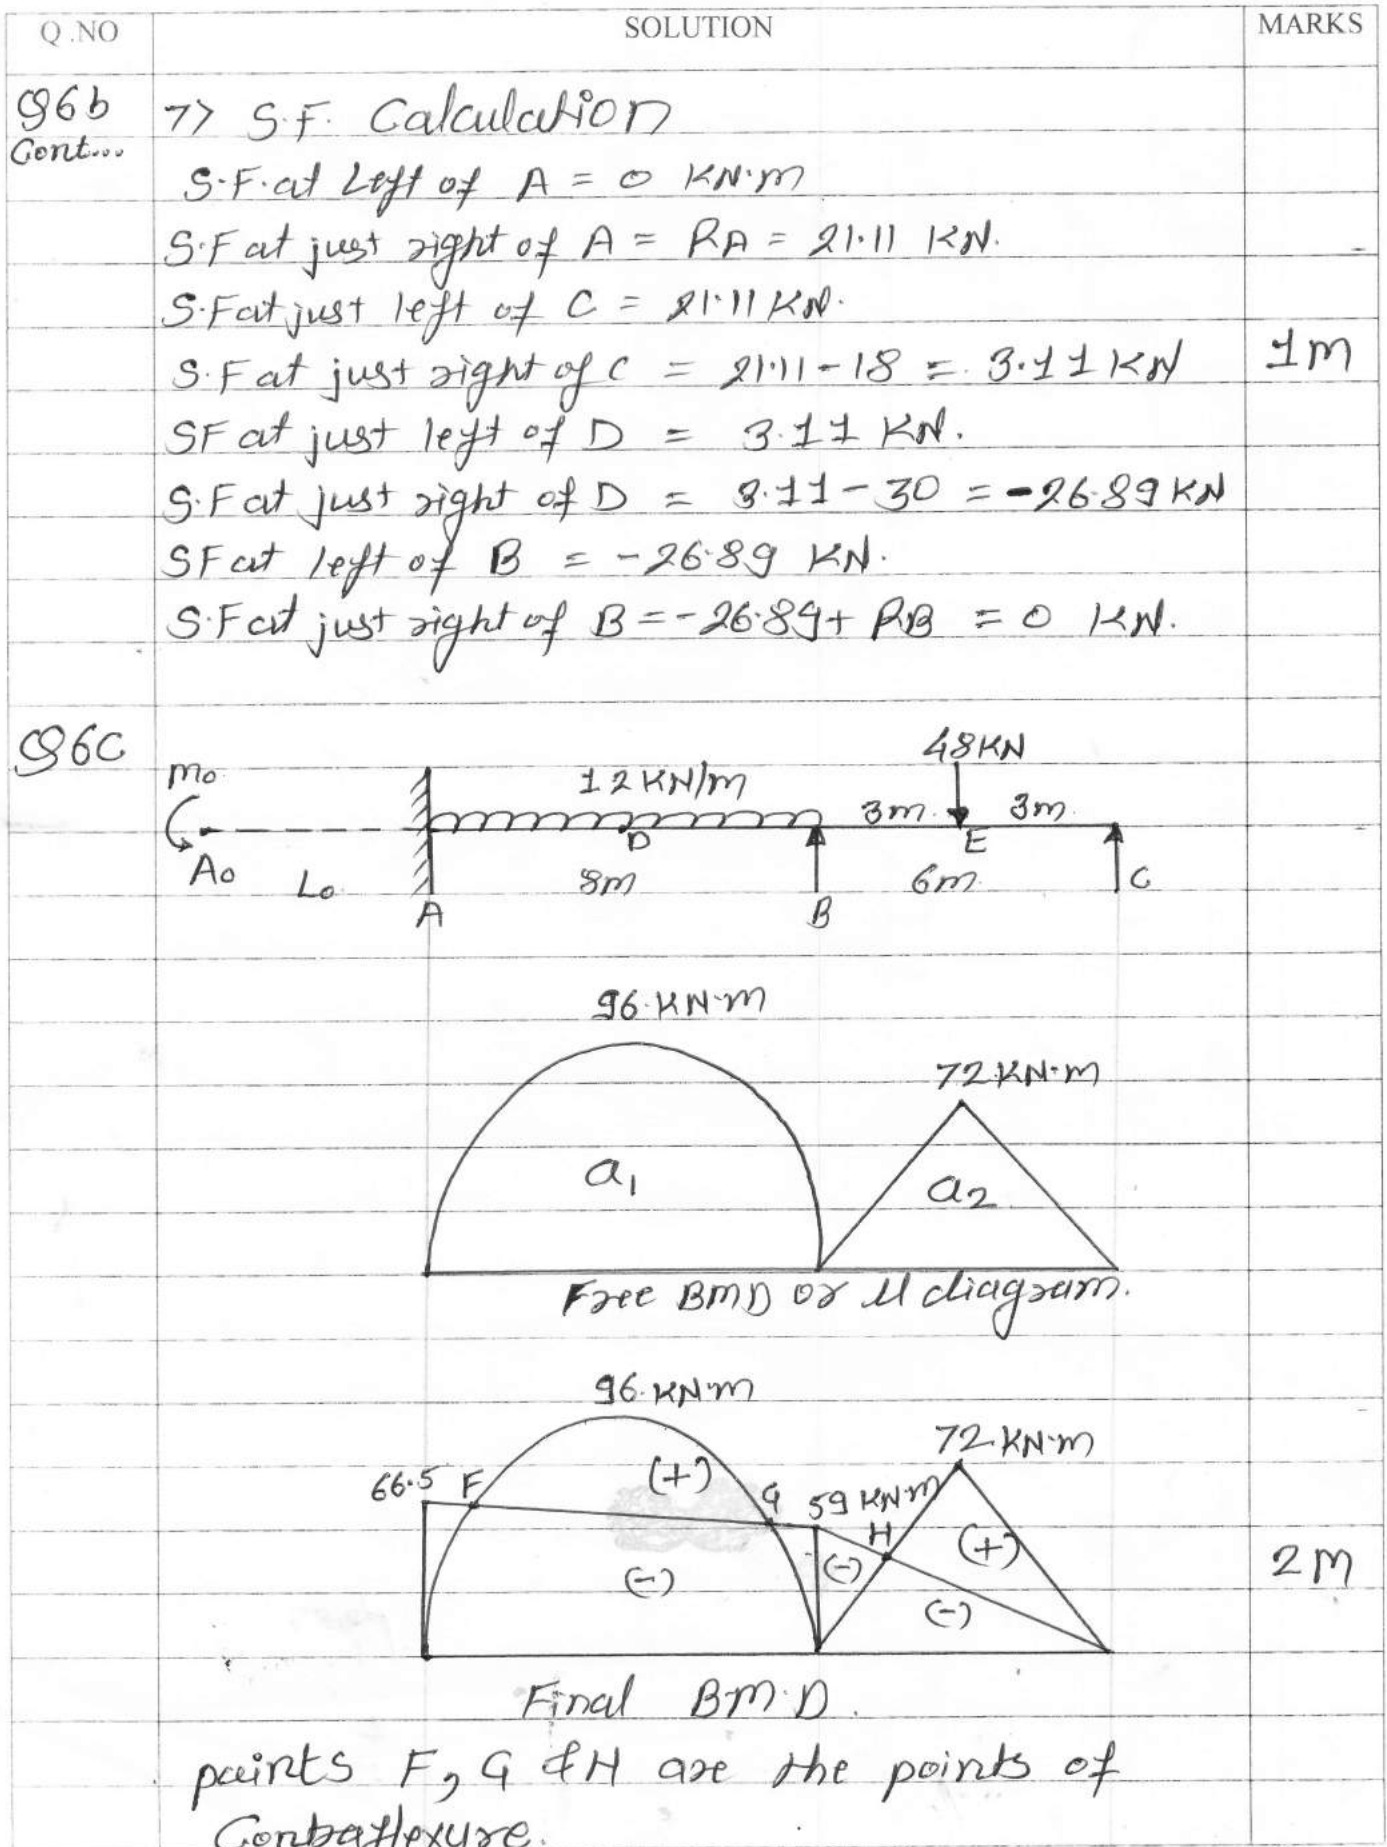 Q.NO SOLUTION MARKS
Q6b 7> S.F. Calculation
Cont...
S.F. at Left of A = 0 KN.m
S.F at just right of A = RA = 21.11 KN.
S.F at just left of C = 21.11 KN.
S.F at just right of C = 21.11 - 18 = 3.11 KN 1M
SF at just left of D = 3.11 KN.
S.F at just right of D = 3.11 - 30 = -26.89 KN
SF at left of B = -26.89 KN.
S.F at just right of B = -26.89 + RB = 0 KN.
Q6C
48KN
Mo 12 KN/m 3m. 3m
D E
Ao Lo 8m 6m C
A B
96.KN.m
72.KN.m
a1 a2
Free BMD or µ diagram.
96.KN.m
72.KN.m
66.5 F (+) G 59 KN.m H (+)
(-) (-) (-) 2M
Final B.M.D.
paints F, G & H are the points of
Contraflexure.